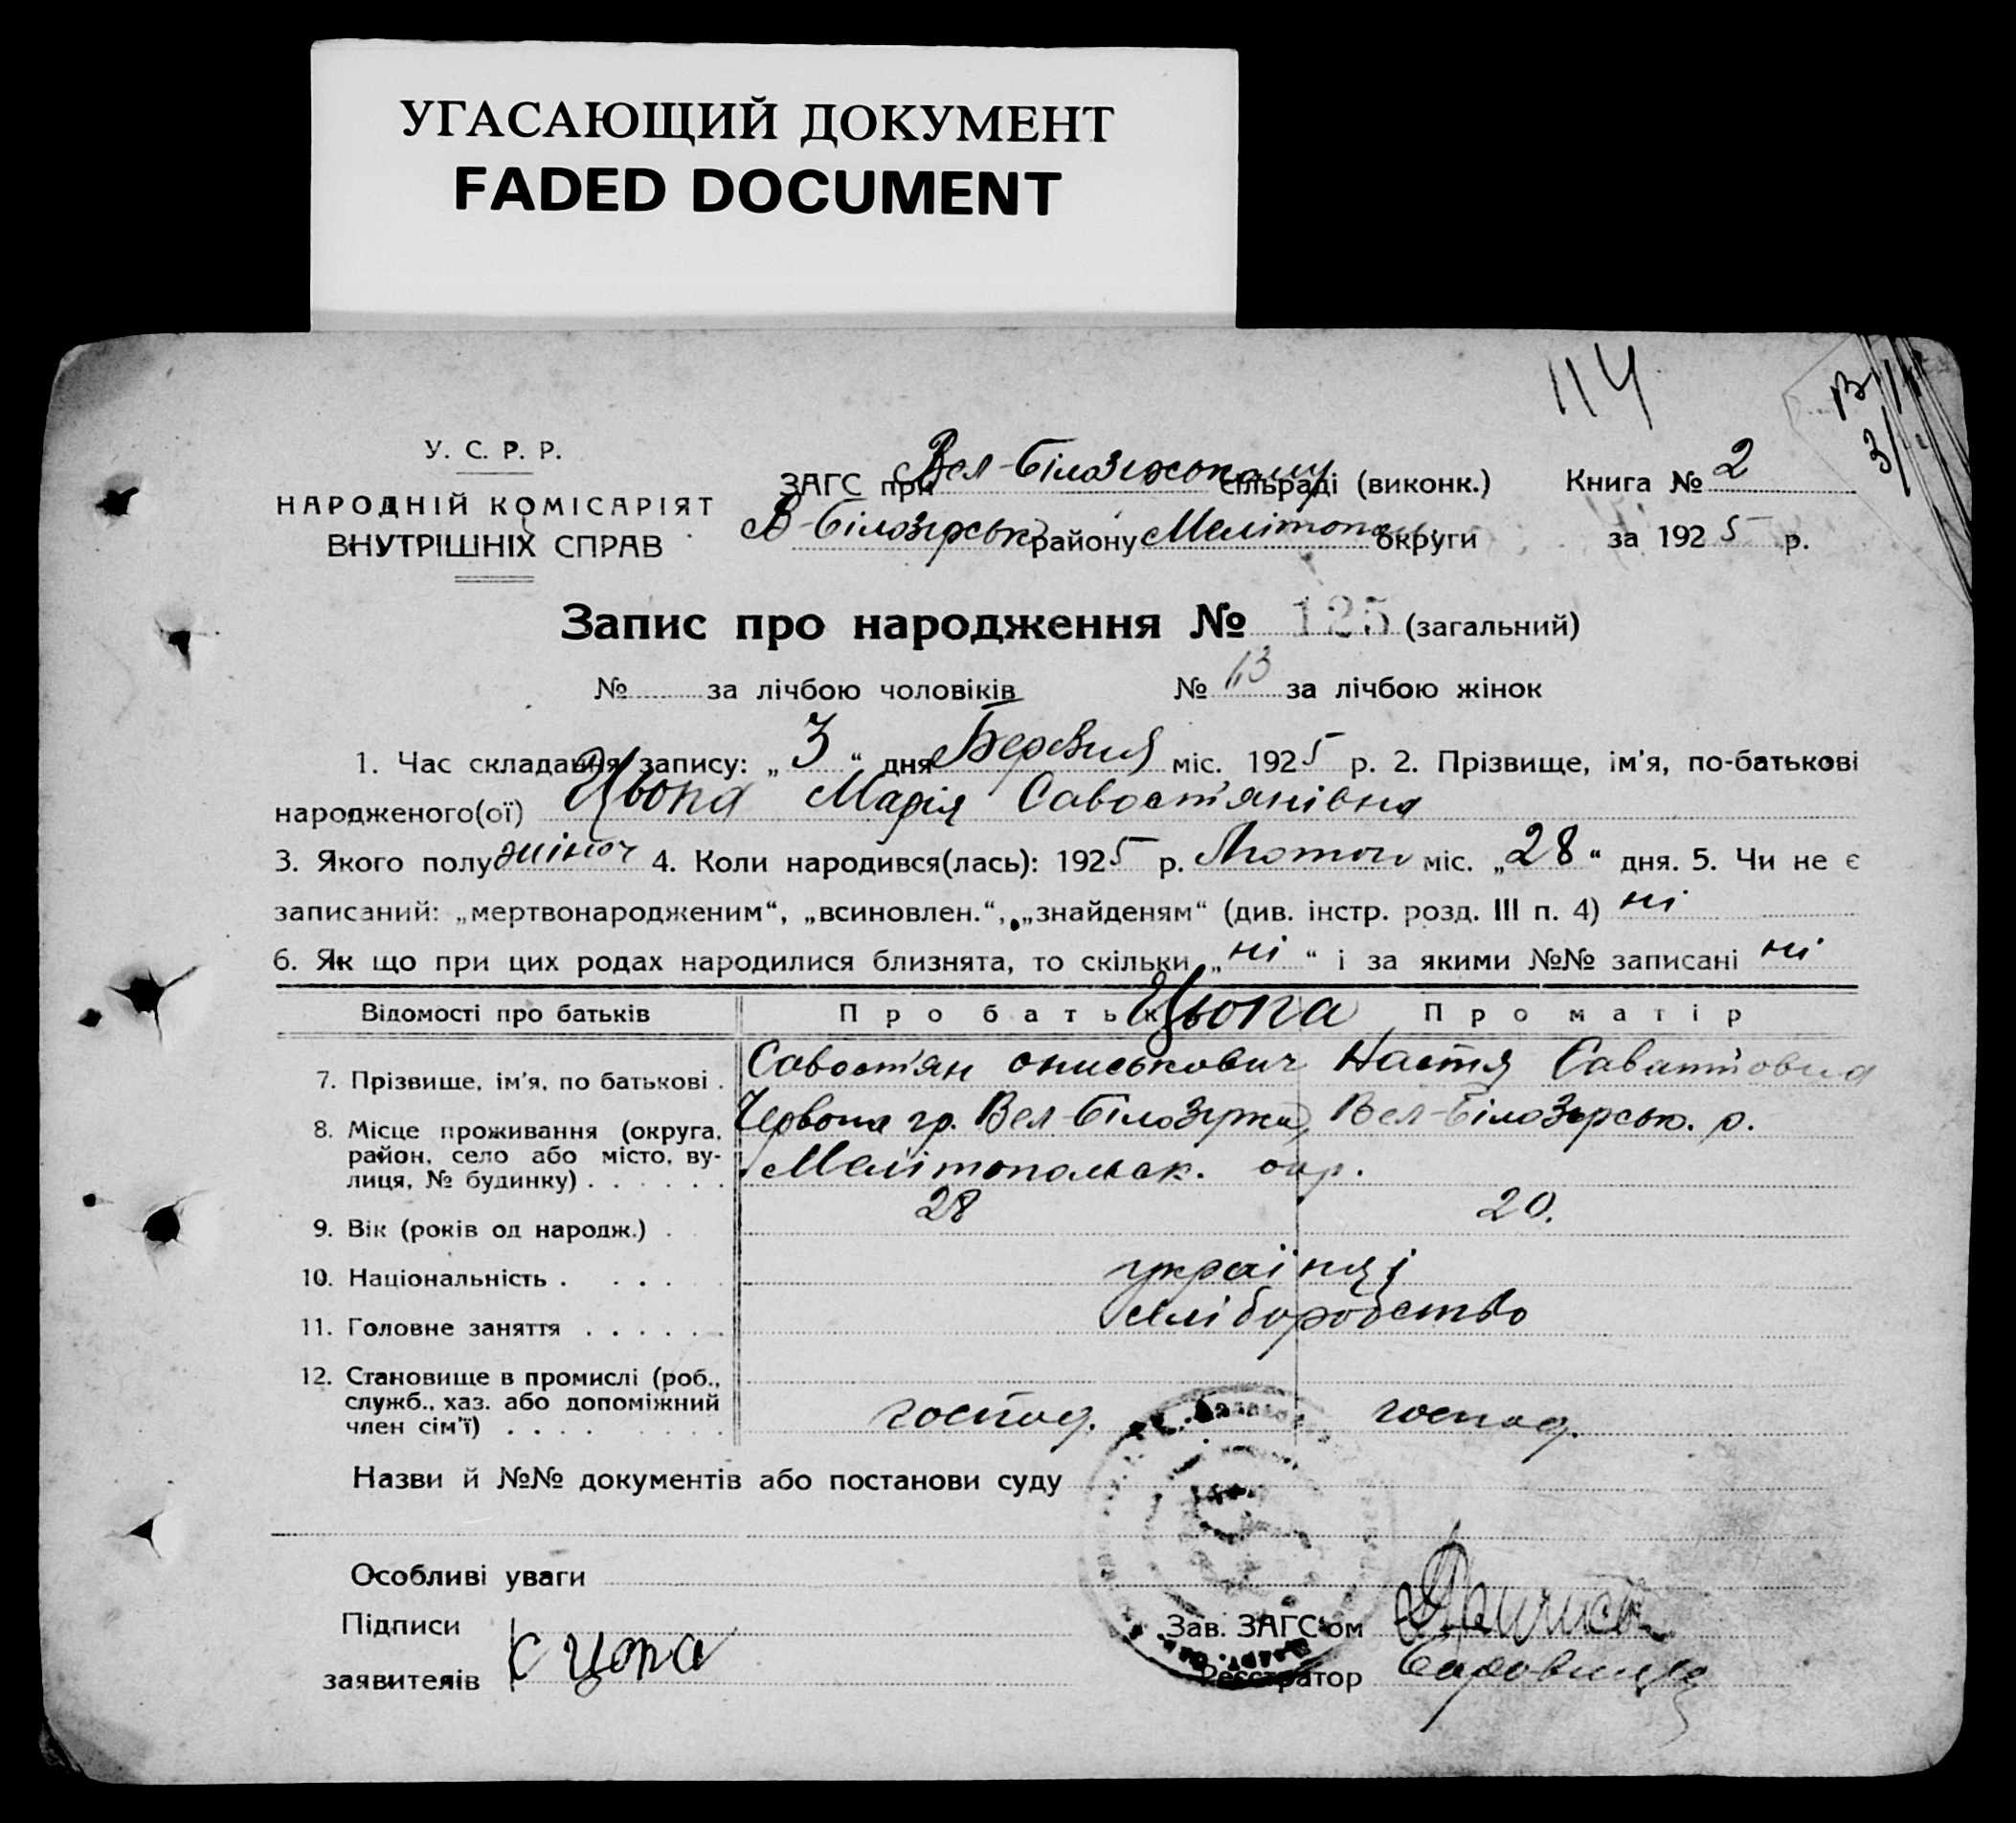 УГАСАЮЩИЙ ДОКУМЕНТ
FADED DOCUMENT
114
У. С. Р. Р.
НАРОДНІЙ КОМІСАРІЯТ
ВНУТРІШНІХ СПРАВ
ЗАГС при Вел-Білозірському сільраді (виконк.)
В-Білозірськ району Мелітополь округи
Книга № 2
за 1925 р.
Запис про народження № 125 (загальний)
№ за лічбою чоловіків № 63 за лічбою жінок
1. Час складання запису: „ 3 “ дня Березня міс. 1925 р. 2. Прізвище, ім'я, по-батькові
народженого(ої) Цьопа Марія Савост'янівна
3. Якого полу жіноч 4. Коли народився(лась): 1925 р. Лютого міс. „28“ дня. 5. Чи не є
записаний: „мертвонародженим“, „всиновлен.“, „знайденям“ (див. інстр. розд. III п. 4) ні
6. Як що при цих родах народилися близнята, то скільки „ ні “ і за якими №№ записані ні
Відомості про батьків Про батька Цьопа Про матір
7. Прізвище, ім'я, по батькові . Савост'ян Ониськович Настя
8. Місце проживання (округа, район, село або місто, вулиця, № будинку) . . . . . . Червона гр. Вел-Білозірка, Вел-Білозірськ. р.
Мелітопольск. окр.
9. Вік (років од народж.) . 28 20.
10. Національність . . . . українці
11. Головне заняття . . . . . . хліборобство
12. Становище в промислі (роб., служб., хаз. або допоміжний член сім'ї) . . . . господ. господ.
Назви й №№ документів або постанови суду
Особливі уваги
Підписи
заявителів С Цопа
Зав. ЗАГС'ом
Реєстратор